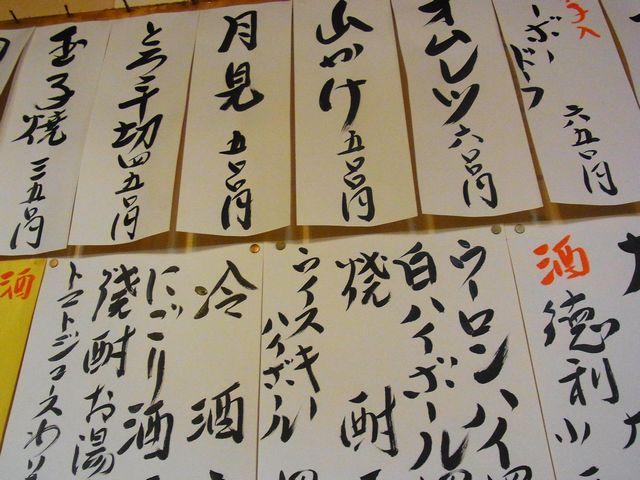 子入
ーボードフ 六五〇円
オムレツ 六〇〇円
山かけ 五〇〇円
月見 五〇〇円
とろ千切 四五〇円
玉子焼 三五〇円
酒 徳利小
ウーロンハイ 四
白ハイボール
焼酎
ウイスキー
ハイボール 四
冷酒
にごり酒
焼酎お湯
トマトジュースわ
酒